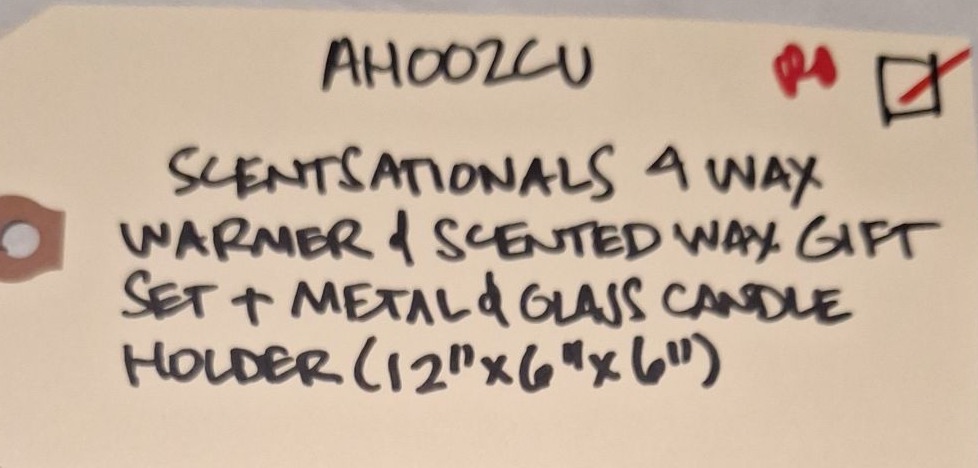 AH002CU
SCENTSATIONALS 4 WAY
WARMER & SCENTED WAX GIFT
SET + METAL & GLASS CANDLE
HOLDER (12"x6"x6")